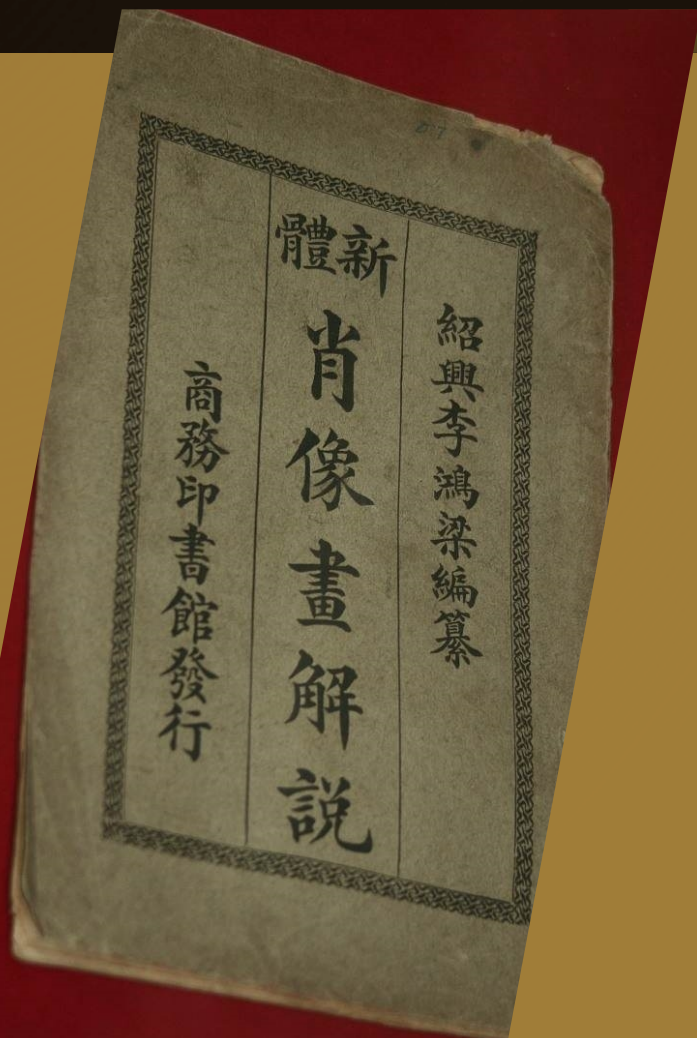 紹興李鴻梁編纂
新體
肖像畫解説
商務印書館發行